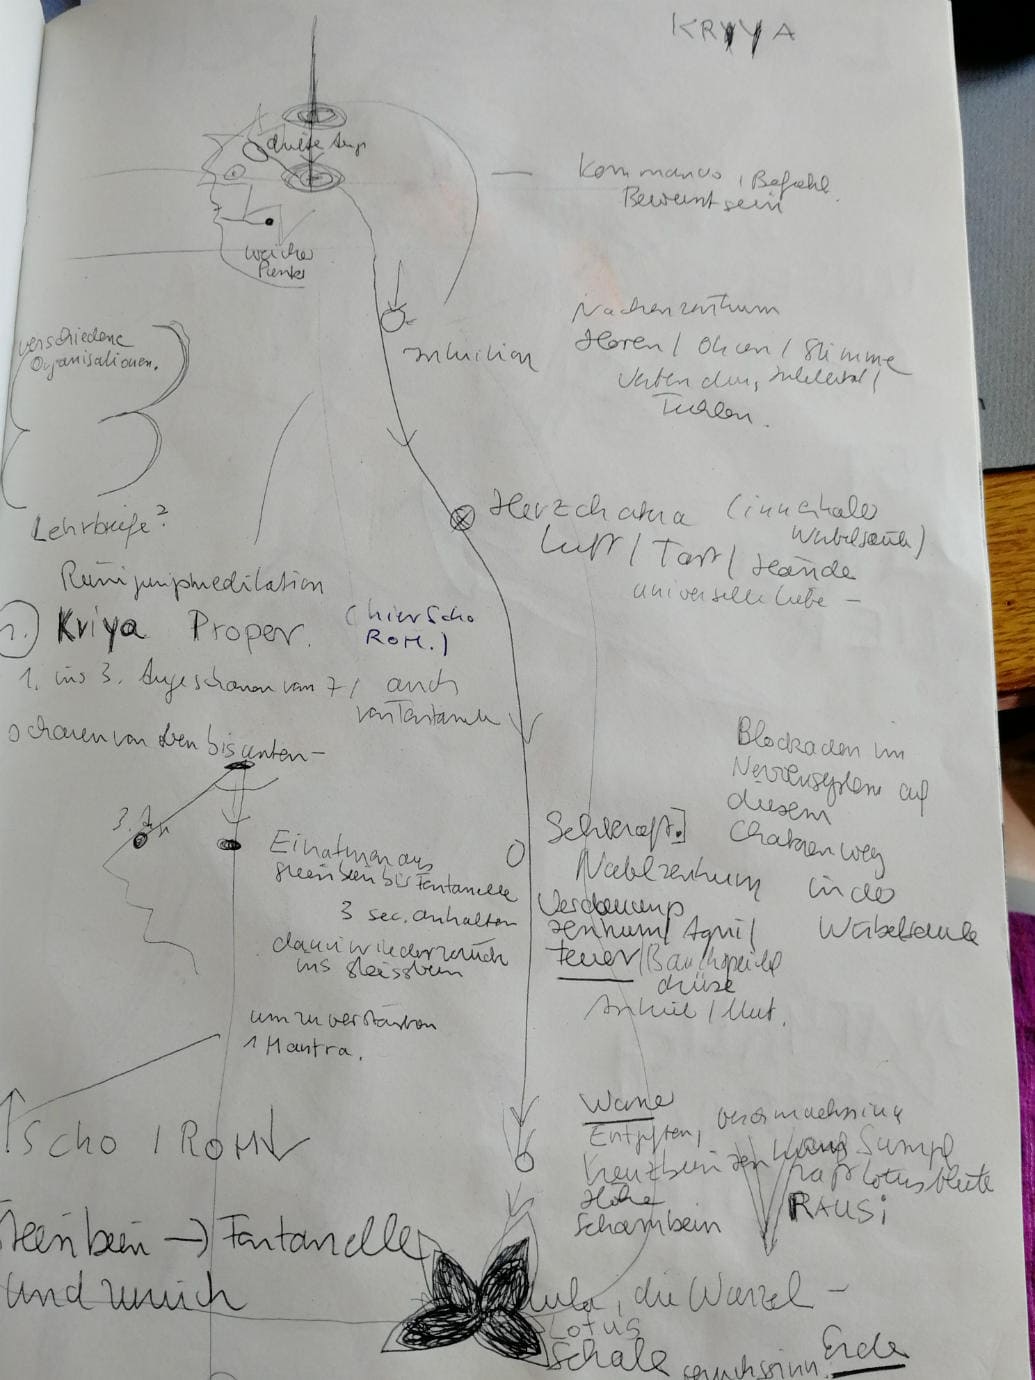 KRYYA
drittes Aug
weicher
Punkt
Kommando, Befehl
Bewusstsein
Nackenzentrum
Hören / Ohren / Stimme
Intuition
verschiedene
Organisationen.
Lehrbriefe?
Reinigungsmeditation
Kriya Proper. (hier Scho
ROM.)
1. ins 3. Auge schauen von 7/ auch
von Fontanelle
schauen von oben bis unten –
Herzchakra (innerhalb
Wirbelsäule)
Luft / Tast / Hände
universelle Liebe –
Blockaden im
Nervensystem auf
diesem
Chakrenweg
in der
Wirbelsäule
3. Au
Einatmen aus
Steißbein bis Fontanelle
3 sec. anhalten
dann wieder zurück
ins Steissbein
um zu verstärken
1 Mantra.
Sehkraft.]
Nabelzentrum
Verdauung
zentrum / Agni /
Feuer / Bauchspeichel
drüse
/ Mut.
Scho / ROM
Steißbein → Fontanelle
und zurück
Entgiften,
Kreuzbeinzen
Höhe
Schambein
Sumpf
Lotusblüte
RAUS!
die Wurzel –
Lotus
Schale
Geruchssinn. Erde